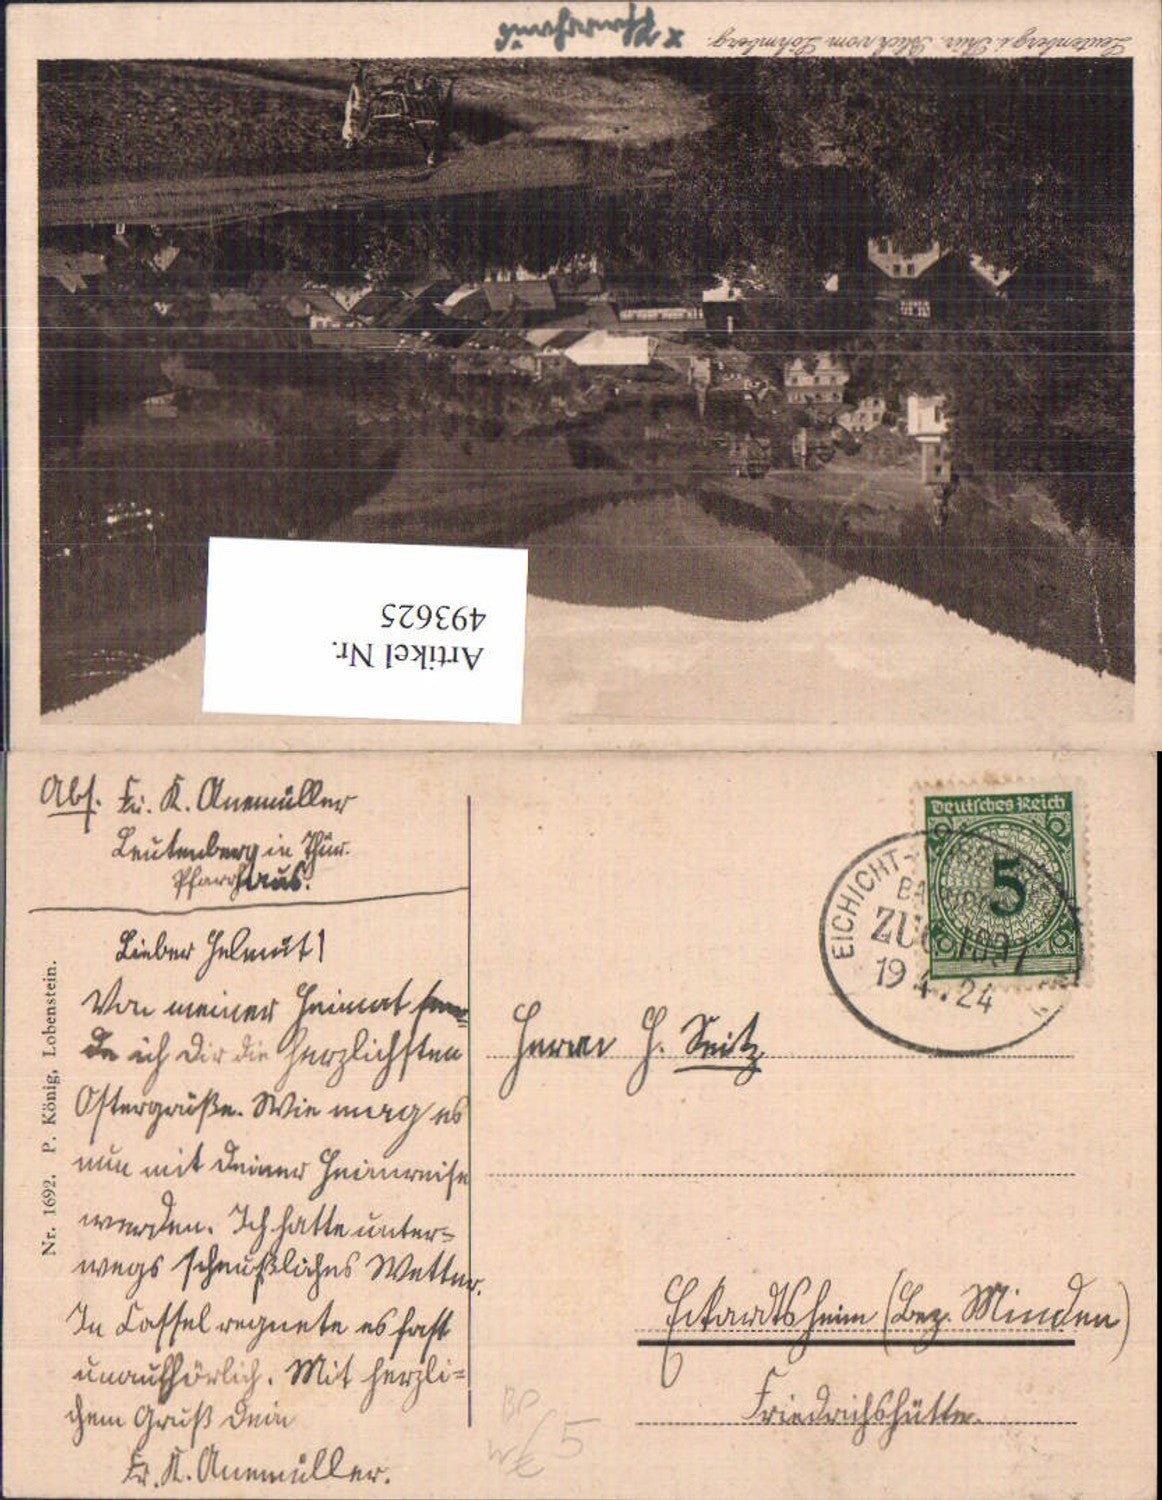 Leutenberg i. Thür. Blick vom Löhmberg.
x Pfarrhaus
Artikel Nr.
493625
Abs. Fr. K. Anemüller
Leutenberg in Thür.
Pfarrhaus.
Lieber Helmut!
Von meiner Heimat sen=
de ich Dir die herzlichsten
Ostergrüße. Wie mag es
nun mit Deiner Heimreise
werden. Ich hatte unter=
wegs scheußliches Wetter.
In Cassel regnete es fast
unaufhörlich. Mit herzli=
chem Gruß Dein
Fr. K. Anemüller.
Nr. 1692. P. König, Lobenstein.
Deutsches Reich
5
EICHICHT-
ZUG 1091
19 4.24
Herrn H. Seitz
Eckardtsheim (Bez. Minden)
Friedrichshütte.
BP
5